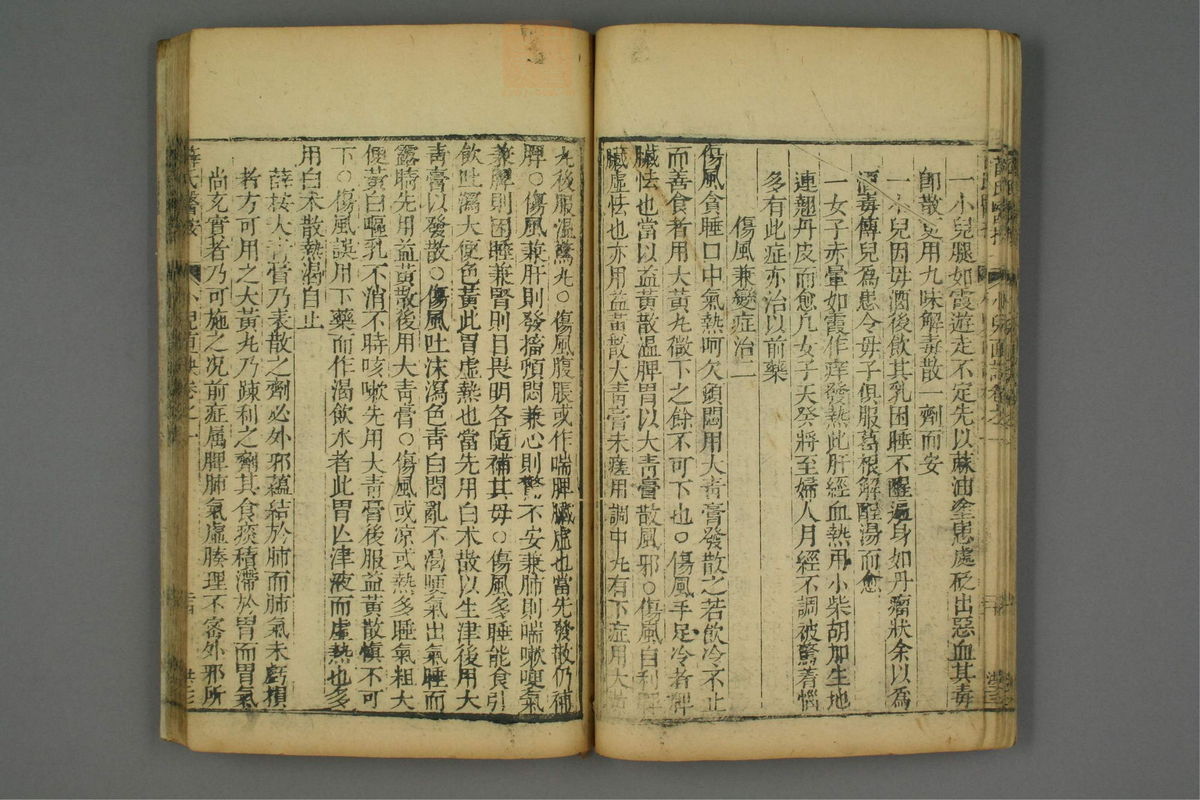 一小兒腿如霞遊走不定先以蔴油塗患處砭出惡血其毒
卽散更用九味解毒散一劑而安
一小兒因母酒後飲其乳困睡不醒遍身如丹瘤狀余以為
酒毒傳兒為患令母子俱服葛根解酲湯而愈
一女子赤暈如霞作痒發熱此肝經血熱用小柴胡加生地
連翹丹皮而愈凡女子天癸將至婦人月經不調被驚着惱
多有此症亦治以前藥
傷風兼變症治二
傷風貪睡口中氣熱呵欠頭悶用大青膏發散之若飲冷不止
而善食者用大黃丸微下之餘不可下也○傷風手足冷者脾
臟怯也當以益黃散溫脾胃以大青膏散風邪○傷風自利脾
臟虛怯也亦用益黃散大青膏未瘥用調中丸有下症用大黃
丸後服溫驚丸○傷風腹脹或作喘脾臟虛也當先發散仍補
脾○傷風兼肝則發搐頓悶兼心則驚不安兼肺則喘嗽哽氣
兼脾則困睡兼腎則目畏明各隨補其母○傷風多睡能食引
飲吐瀉大便色黃此胃虛熱也當先用白朮散以生津後用大
青膏以發散○傷風吐沫瀉色青白悶亂不渴哽氣出氣睡而
露睛先用益黃散後用大青膏○傷風或凉或熱多睡氣粗大
便黃白嘔乳不消不時咳嗽先用大青膏後服益黃散愼不可
下○傷風誤用下藥而作渴飲水者此胃亾津液而虛熱也多
用白朮散熱渴自止
薛按大青膏乃表散之劑必外邪蘊結於肺而肺氣未虧損
者方可用之大黃丸乃疎利之劑其食痰積滯於胃而胃氣
尚充實者乃可施之况前症属脾肺氣虛腠理不密外邪所
薛氏醫按 小兒直訣卷之一